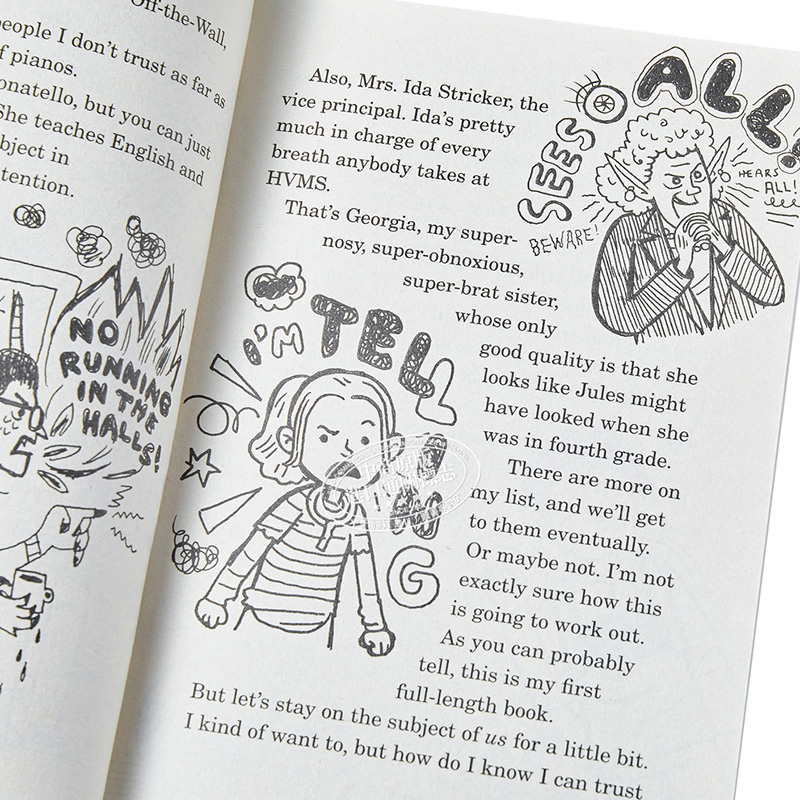 Off-the-Wall,
people I don't trust as far as
f pianos.
onatello, but you can just
She teaches English and
bject in
tention.
NO
RUNNING
IN THE
HALLS!
Also, Mrs. Ida Stricker, the
vice principal. Ida's pretty
much in charge of every
breath anybody takes at
HVMS.
SEES
ALL!
HEARS
ALL!
BEWARE!
That's Georgia, my super-
nosy, super-obnoxious,
super-brat sister,
whose only
good quality is that she
looks like Jules might
have looked when she
was in fourth grade.
I'M TELLING
There are more on
my list, and we'll get
to them eventually.
Or maybe not. I'm not
exactly sure how this
is going to work out.
As you can probably
tell, this is my first
full-length book.
But let's stay on the subject of us for a little bit.
I kind of want to, but how do I know I can trust